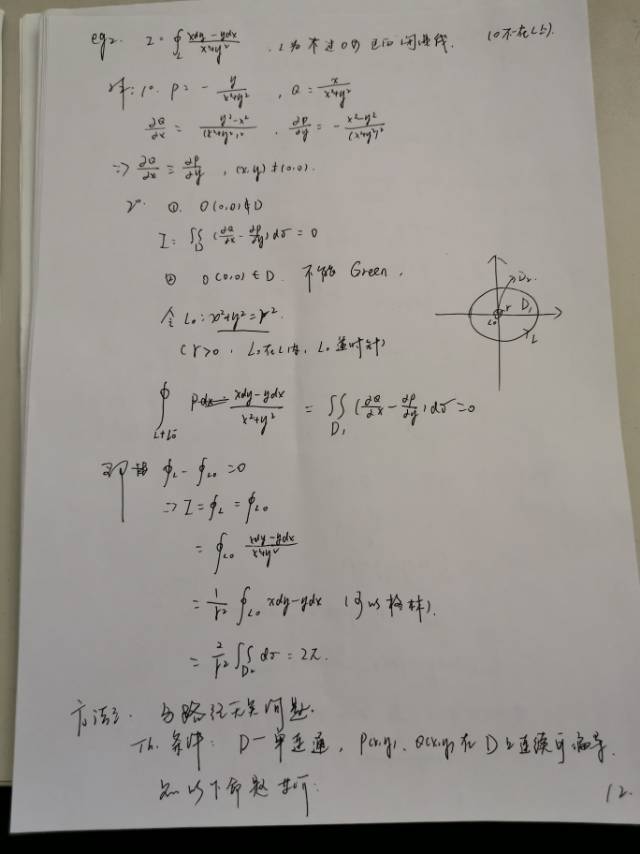 eg2. I = ∮_L (xdy-ydx)/(x²+y²) . L为不过O的正向闭曲线. (O不在L上).
解: 1°. P = - y/(x²+y²) , Q = x/(x²+y²)
∂Q/∂x = (y²-x²)/(x²+y²)² , ∂P/∂y = - (x²-y²)/(x²+y²)²
=> ∂Q/∂x = ∂P/∂y , (x,y)≠(0,0).
2°. ① O(0,0)∉D
I = ∬_D (∂Q/∂x - ∂P/∂y)dσ = 0
② O(0,0)∈D. 不能 Green.
令 L₀: x²+y²=r².
(r>0, L₀在L内, L₀逆时针)
D₂
r
D₁
L₀
L
∮_{L+L₀⁻} (xdy-ydx)/(x²+y²) = ∬_{D₁} (∂Q/∂x - ∂P/∂y)dσ = 0
即 ∮_L - ∮_{L₀} = 0
=> I = ∮_L = ∮_{L₀}
= ∮_{L₀} (xdy-ydx)/(x²+y²)
= 1/r² ∮_{L₀} xdy-ydx (可以格林).
= 2/r² ∬_{D₂} dσ = 2π.
方法3. 与路径无关问题.
Th. 条件: D一单连通, P(x,y), Q(x,y)在D上连续可偏导.
则以下命题等价:
12.